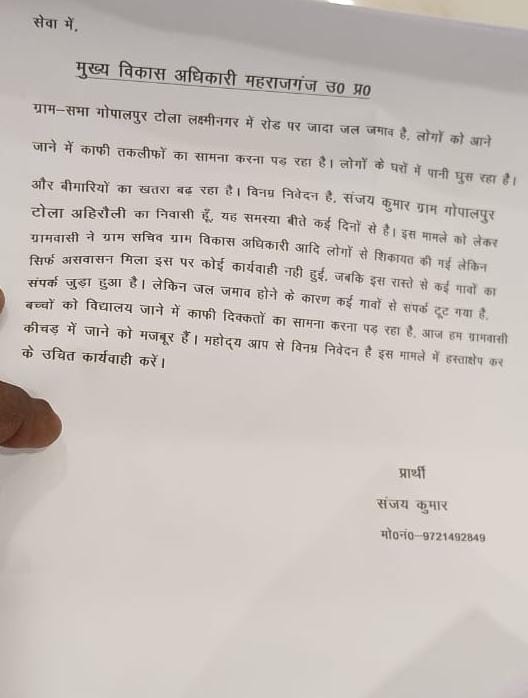 सेवा में,
मुख्य विकास अधिकारी महराजगंज उ0 प्र0
ग्राम–सभा गोपालपुर टोला लक्ष्मीनगर में रोड पर जादा जल जमाव है, लोगों को आने
जाने में काफी तकलीफों का सामना करना पड़ रहा है। लोगों के घरों में पानी घुस रहा है।
और बीमारियों का खतरा बढ़ रहा है। विनम्र निवेदन है, संजय कुमार ग्राम गोपालपुर
टोला अहिरौली का निवासी हूँ, यह समस्या बीते कई दिनों से है। इस मामले को लेकर
ग्रामवासी ने ग्राम सचिव ग्राम विकास अधिकारी आदि लोगों से शिकायत की गई लेकिन
सिर्फ असवासन मिला इस पर कोई कार्यवाही नही हुई, जबकि इस रास्ते से कई गावों का
संपर्क जुड़ा हुआ है। लेकिन जल जमाव होने के कारण कई गावों से संपर्क टूट गया है,
बच्चों को विद्यालय जाने में काफी दिक्कतों का सामना करना पड़ रहा है, आज हम ग्रामवासी
कीचड़ में जाने को मजबूर हैं। महोद्य आप से विनम्र निवेदन है इस मामले में हस्ताक्षेप कर
के उचित कार्यवाही करें।
प्रार्थी
संजय कुमार
मो0नं0–9721492849